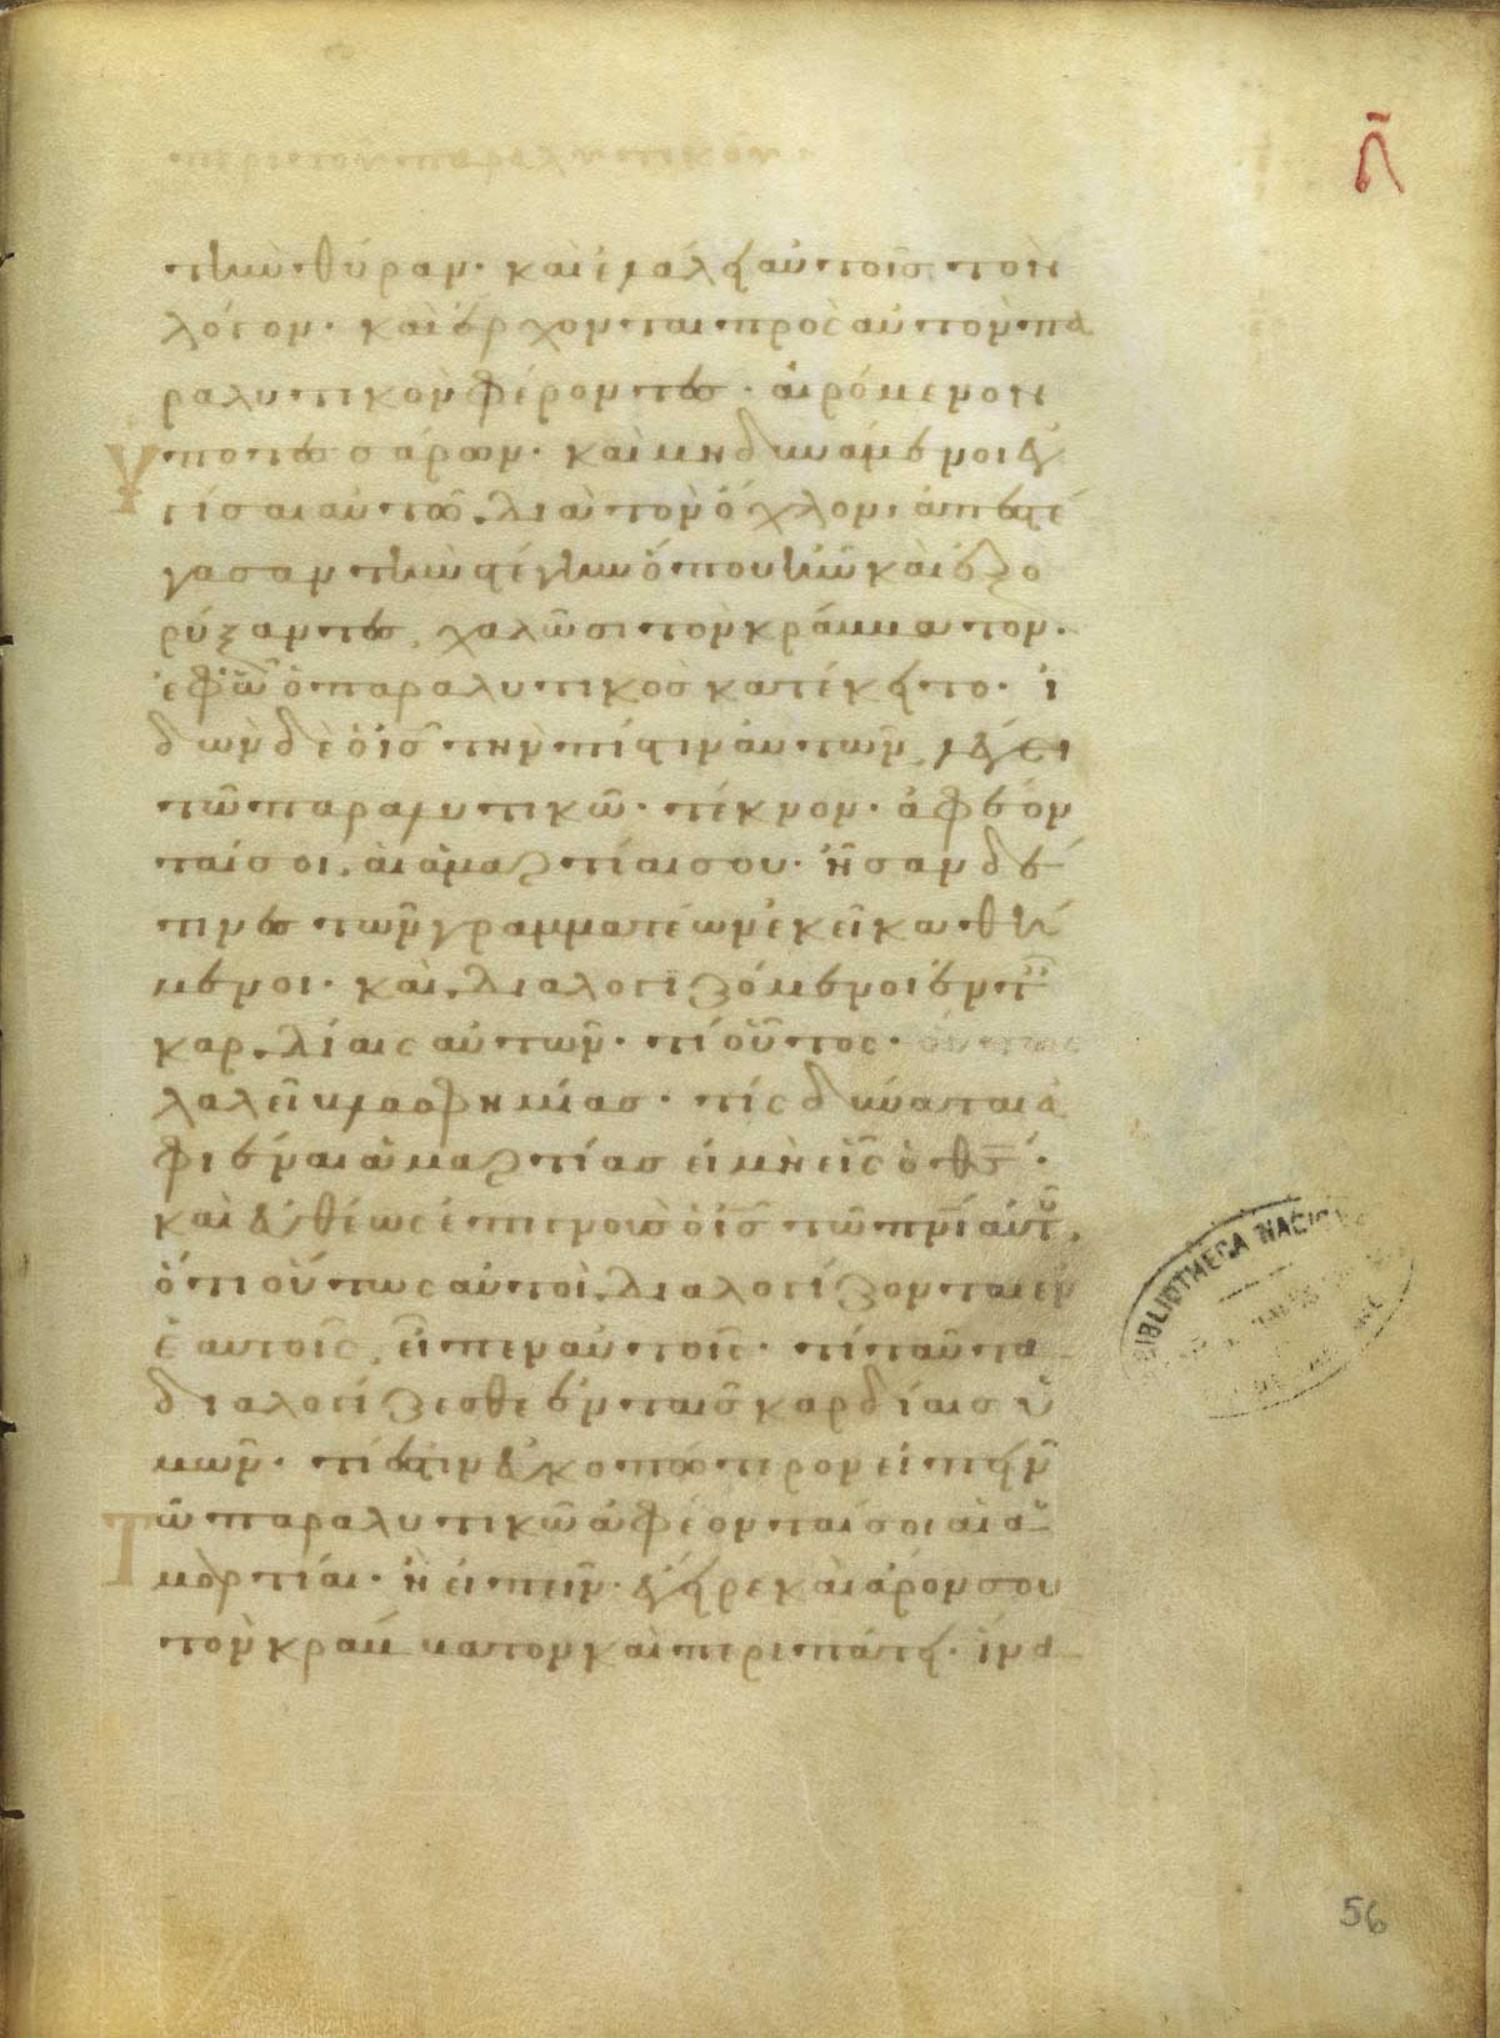 περι του παραλυτικου
π
την θύραν· καὶ ἐλάλει αὐτοῖσ τὸν
λόγον· καὶ ἔρχονται πρὸς αὐτὸν πα
ραλυτικὸν φέροντεσ· αἰρόμενον
ὑπο τεσσάρων· καὶ μὴ δυνάμενοι ἐγ
γίσαι αὐτῶ διὰ τὸν ὄχλον, ἀπεστέ
γασαν τὴν στέγην ὅπου ἦν καὶ ἐξο
ρύξαντεσ, χαλῶσι τὸν κράββατον.
ἐφ ὧ ὁ παραλυτικὸσ κατέκειτο· ἰ
δὼν δὲ ὁ ισ τὴν πίστιν ἀυτῶν, λέγει
τῶ παραλυτικῶ· τέκνον· ἀφέων
ταί σοι, ἁι ἁμαρτίαι σου· ἦσαν δέ
τινεσ τῶν γραμματέων ἐκεῖ καθή
μενοι· καὶ διαλογιζόμενοι ἐν τ
καρδίαις αὐτῶν· τί οὗτος· οὕτως
λαλεῖ βλασφημίασ· τίς δύναται ἀ
φιέναι ἁμαρτίασ εἰ μὴ εἷς ὁ θσ·
καὶ ἐυθέως ἐπιγνοὺσ ὁ ισ τῶ πνι ἀυτ,
ὅτι οὕτως αὐτοὶ διαλογίζονται ἐν
ἑαυτοῖς, εἶπεν αὐτοῖς· τί ταῦτα
διαλογίζεσθε ἐν ταῖσ καρδίαισ ὑ
μῶν· τί ἐστιν ἐυκοπώτερον εἰπεῖν
τῶ παραλυτικῶ ἀφέονται σοι ἁι ἁ
μαρτίαι· ἢ ἐιπεῖν· ἔγειρε καὶ ἆρον σου
τὸν κράββατον καὶ περιπάτει· ἵνα
BIBLIOTHECA NACION
56